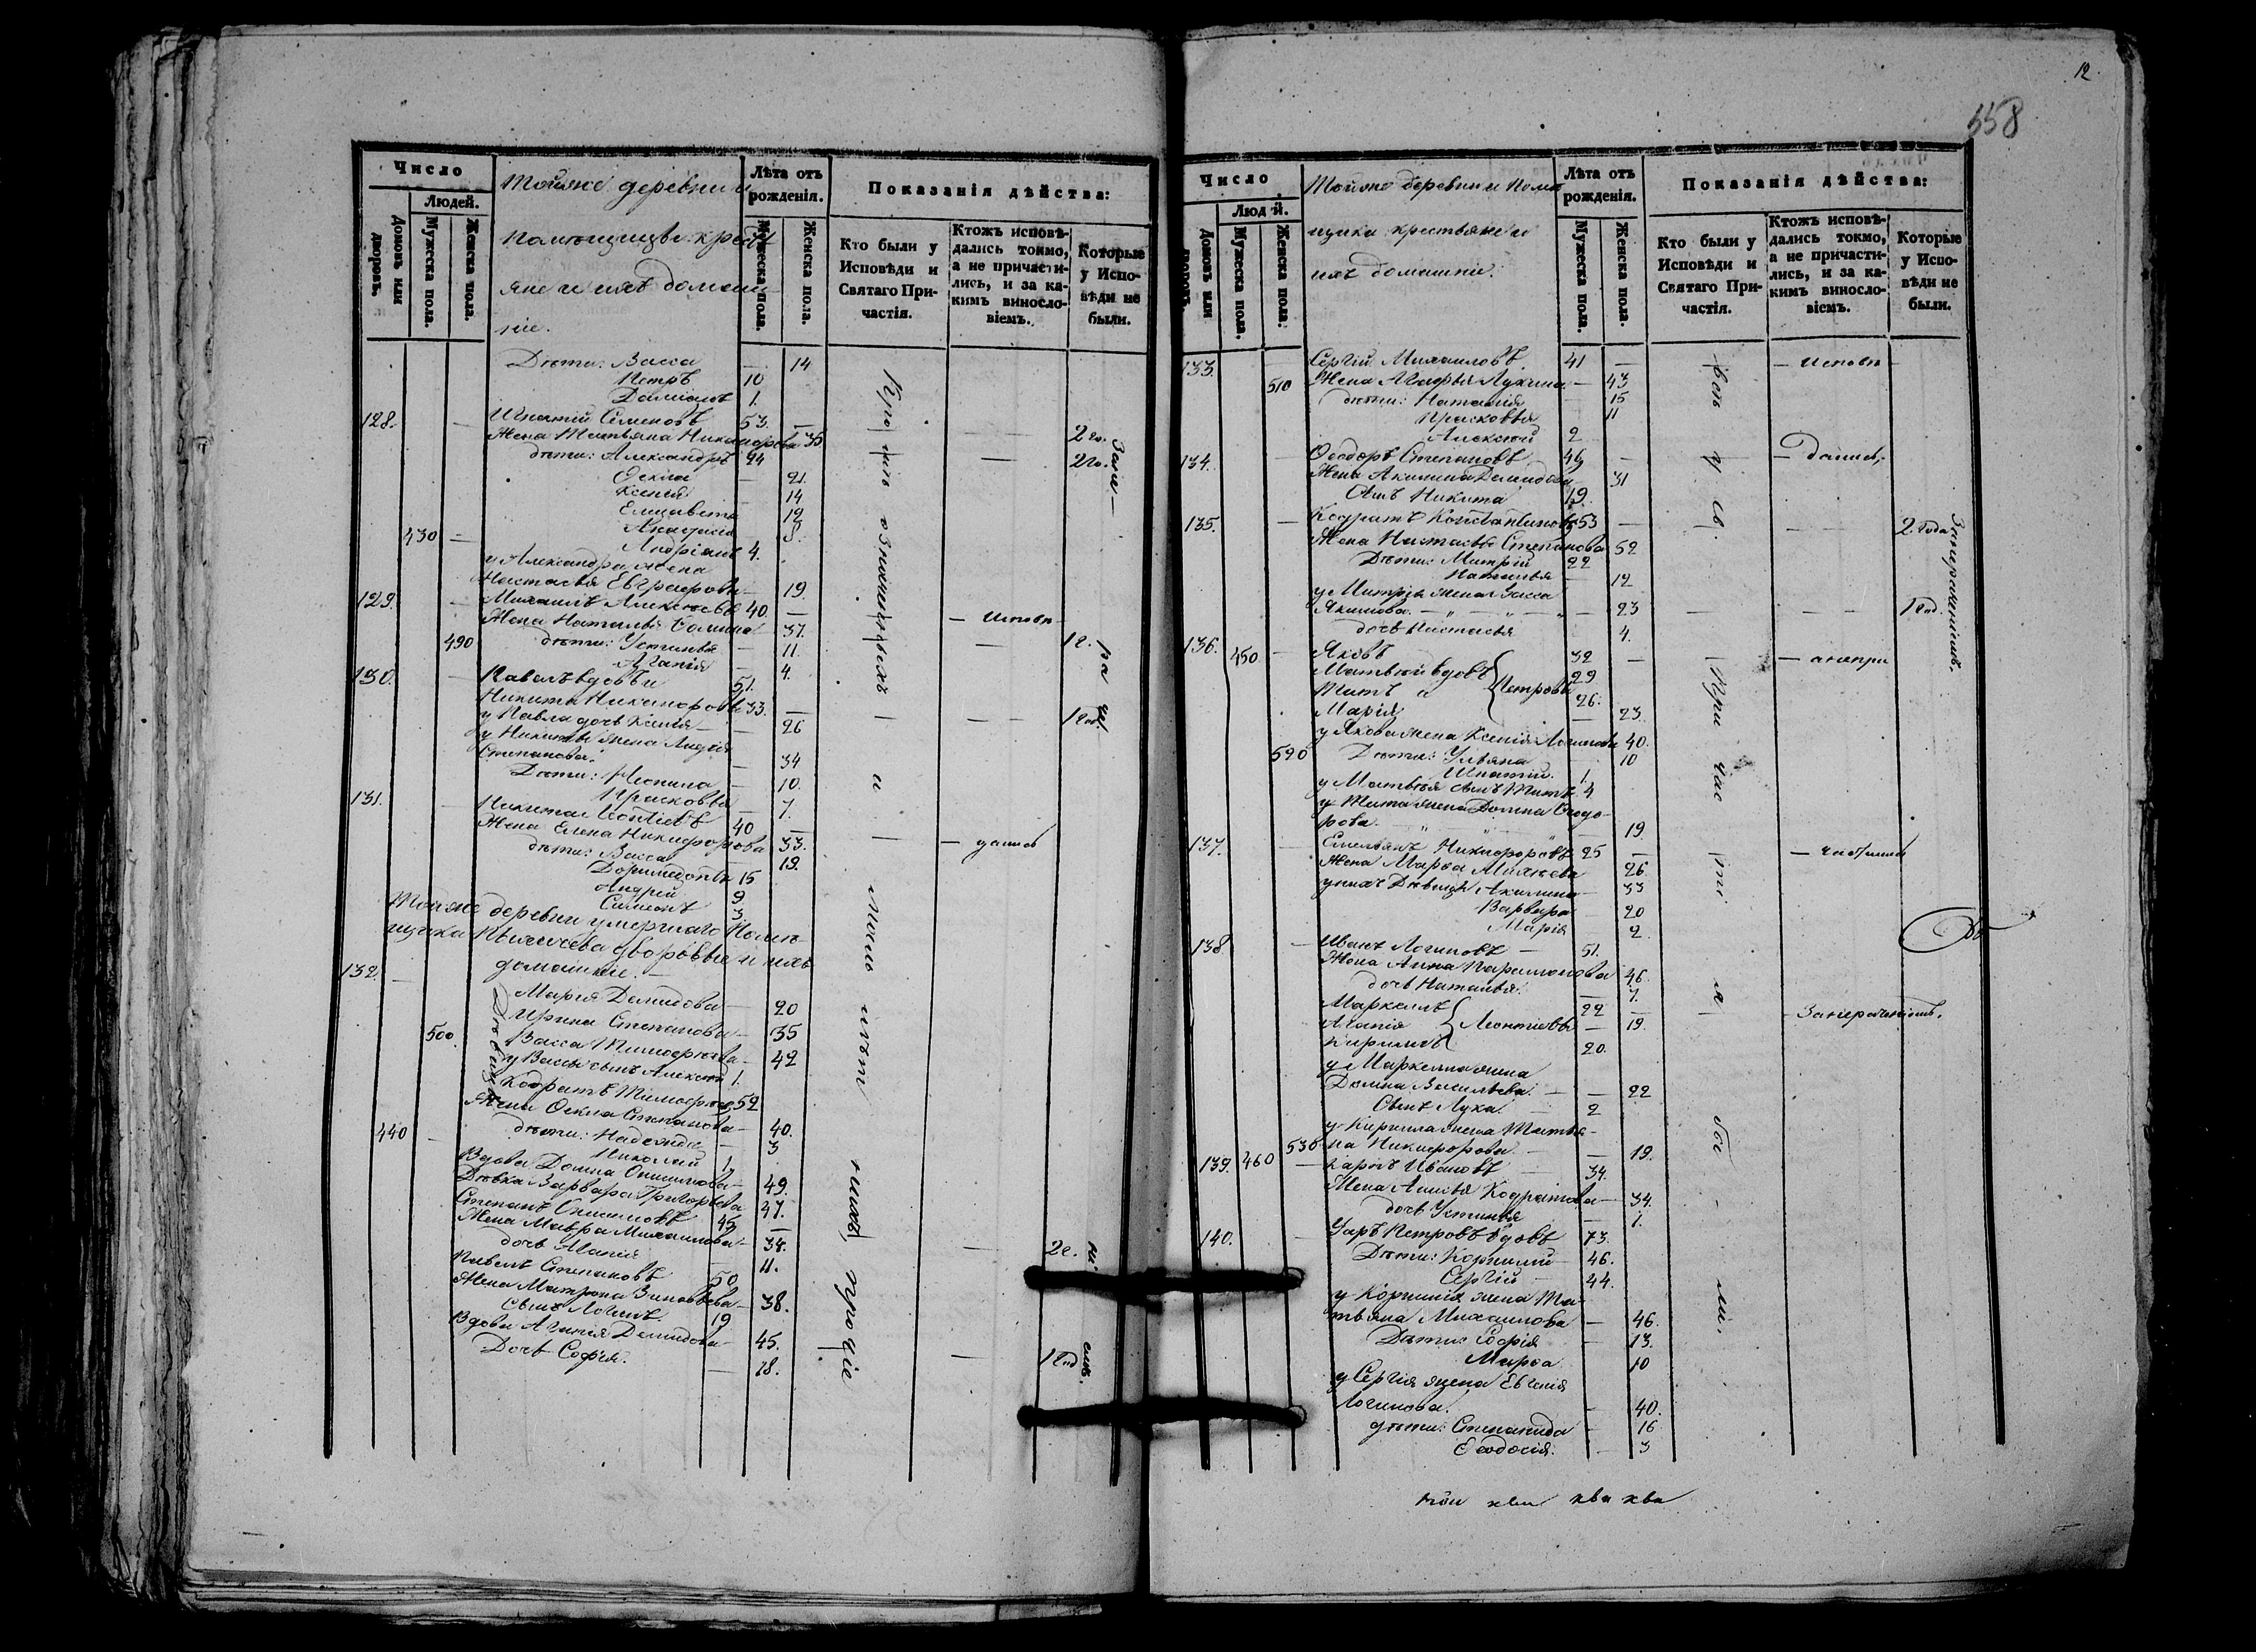 Число
Людей.
Домовъ или дворовъ.
Мужеска пола.
Женска пола.
Тойже деревни и
помѣщицы крестъ
яне и ихъ домаш
ніе.
Лѣта отъ рожденія.
Мужеска пола.
Женска пола.
Показанія дѣйства:
Кто были у Исповѣди и Святаго Причастія.
Ктожъ исповѣдались токмо, а не причастились, и за какимъ винословіемъ.
Которые у Исповѣди не были.
Дѣти: Васса — 14
Петръ 10
Даміанъ 1.
128. — Игнатій Семеновъ 53. —
Жена Татьяна Никифорова 35 2 го.
дѣти: Александръ 24 2 го.
Ѳекла — 21.
Ксенія 14
Елизавета 12
Анастасія
430 — Андріанъ 4.
у Александра жена
Настасья Евграфова — 19.
129. — Михаилъ Алексѣевъ 40. —
Жена Наталья 37. — Исповѣ
490 дѣти: Устинья — 11. 1 г.
Агапія — 4.
130. — Павелъ вдовъ и 51.
Никита Никифоровы 33. —
у Павла дочь Ксенія — 26 1 год.
у Никиты жена Лидія
Степанова. — 34
Дѣти: Неонила — 10.
Прасковья — 7.
131. — Никита Леонтіевъ 40 —
Жена Елена Никифорова 33. — дались
дѣти: Васса — 19.
Доримедонтъ 15
Андрей 9
Симеонъ 3.
Тойже деревни умершаго Помѣ-
щика дворовые и ихъ
домашніе. —
132. —
Дѣвицы
Марія Демидова — 20
Ирина Степанова — 35
500. Васса Тимофеева — 42
у Вассы сынъ Алексѣй 1.
Кодратъ Тимофеевъ 52
Жена Ѳекла Степанова — 40.
440 — дѣти: Надежда — 3
Николай 1.
Вдова Домна Онисимова — 49.
Дѣвка Варвара Григорьева 47.
Степанъ Онисимовъ 45 —
Жена Мавра Михаилова — 34. — 2 г.
дочь Агапія — 11.
Павелъ Степановъ 50
Жена Матрона Зиновьева — 38.
Сынъ Логинъ. 19
Вдова Агапія Демидова — 45.
Дочь Софія. — 18. — 1 год
Кро мѣ означенныхъ и
нихъ прочіе
За не ра че ні емъ.
12
558
Число
Людей.
Домовъ или дворовъ.
Мужеска пола.
Женска пола.
Тойже деревни помѣ
щика крестьяне и
ихъ домашніе.
Лѣта отъ рожденія.
Мужеска пола.
Женска пола.
Показанія дѣйства:
Кто были у Исповѣди и Святаго Причастія.
Ктожъ исповѣдались токмо, а не причастились, и за какимъ винословіемъ.
Которые у Исповѣди не были.
133. — Сергій Михаиловъ 41 — — Исповѣ
510 Жена Агафья Лукина — 43
дѣти: Наталія 15
Прасковья 11
Алексѣй 2
134. — Ѳеодоръ Степановъ 49 — — дались,
Жена Акилина Демидова 31
Сынъ Никита 19.
135. — Кодратъ Константиновъ 53 — 2 года
Жена Настасья Степанова 52
Дѣти: Митрій 22
Наталья — 12
у Митрія жена Васса
Якимова. — — 23 — 1 год.
дочь Настасья 4.
136. 450 — Яковъ 32 — — а не при
Матвѣй вдовъ 29
Титъ и 26.
Петровы
Марія — 23.
у Якова жена Ксенія Логинова 40.
520 Дѣти: Ульяна 10
Игнатій. 1.
у Матвѣя сынъ Титъ 4
у Тита жена Домна Ѳеодо-
рова. 19.
137. — Емельянъ Никифоровъ 25 — — частились
Жена Марѳа 26.
у нихъ Дѣвица Акилина — 33
Варвара — 20
Марія 2.
138 — Иванъ Логиновъ — 51.
Жена Анна Парамонова 46.
дочь Наталья. — 7.
Маркеллъ 22 — — За нерачениемъ.
Агапія — 19.
Леонтіевы
Кириллъ 20.
у Маркелла жена
Домна Васильева. — — 22
Сынъ Лука. 2
у Кирилла жена Татья-
530 на Никифорова. — — 19.
139. 460 — Карпъ Ивановъ 34.
Жена Кодратова — 34.
дочь Устинья — 1.
140. — Уаръ Петровъ вдовъ 73.
Дѣти: Корнилій 46.
Сергій 44.
у Корнилія жена Та-
тьяна Михаилова — 46.
Дѣти: Софія — 13.
Марѳа 10
у Сергія жена Евгенія
Логинова. — 40.
дѣти: Степанида — 16
Ѳеодосія. — 3
у св. При час ті я бы - ли.
За нерачениемъ.